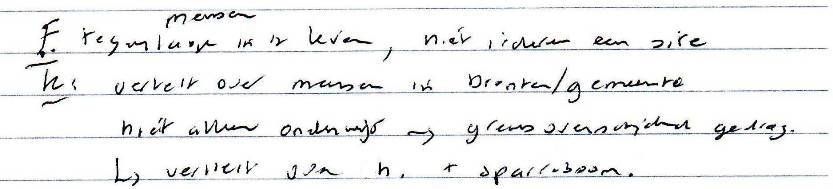 mensen
F. tegen in leven, niet iedereen een
h: vertelt over mensen in Dronten/gemeente
niet alleen onderwijs → grensoverschrijdend gedrag.
↳ vertelt over h. +